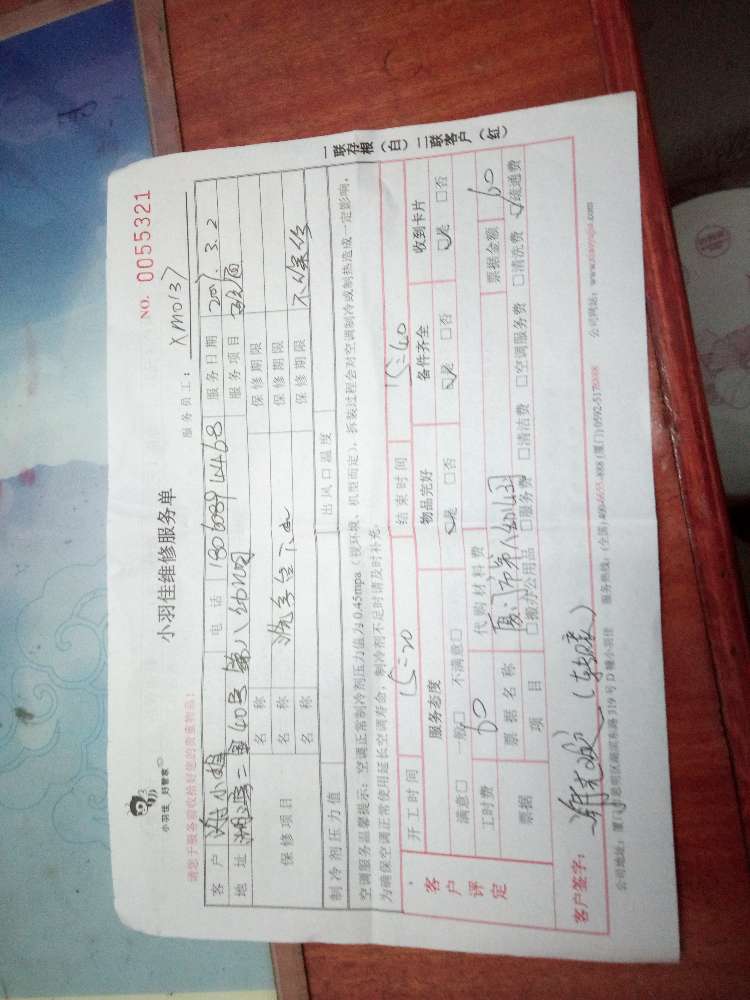 小羽佳 好管家
小羽佳维修服务单
NO. 0055321
请您于服务前收拾好您的贵重物品!
服务员工: XM0137
客户 小姐 电话 服务日期 3.2
地址 二里40号第八幼儿园 服务项目
保修项目 名称 洗手台下水 保修期限
名称 保修期限
名称 保修期限 不保修
制冷剂压力值 出风口温度
空调服务温馨提示:空调正常制冷剂压力值为0.45mpa(视环境、机型而定),拆装过程会对空调制冷或制热造成一定影响,
为确保空调正常使用延长空调寿命,制冷剂不足时请及时补充。
客户评定 开工时间 15:20 结束时间 15:40
服务态度 物品完好 备件齐全 收到卡片
满意□ 一般□ 不满意□ ☑是 □否 ☑是 □否 ☑是 □否
工时费 60 代购材料费 票据金额 60
票据 票据名称 厦门市第八幼儿园
项目 □搬办公用品 □服务费 □清洁费 □空调服务费 □清洗费 ☑疏通费
客户签字:
公司地址:厦门思明区湖滨东路319号D幢小羽佳 服务热线:(全国)400-6655-888 (厦门)0592-5178888 公司网站:www.xiaoyujia.com
一联存根(白) 二联客户(红)